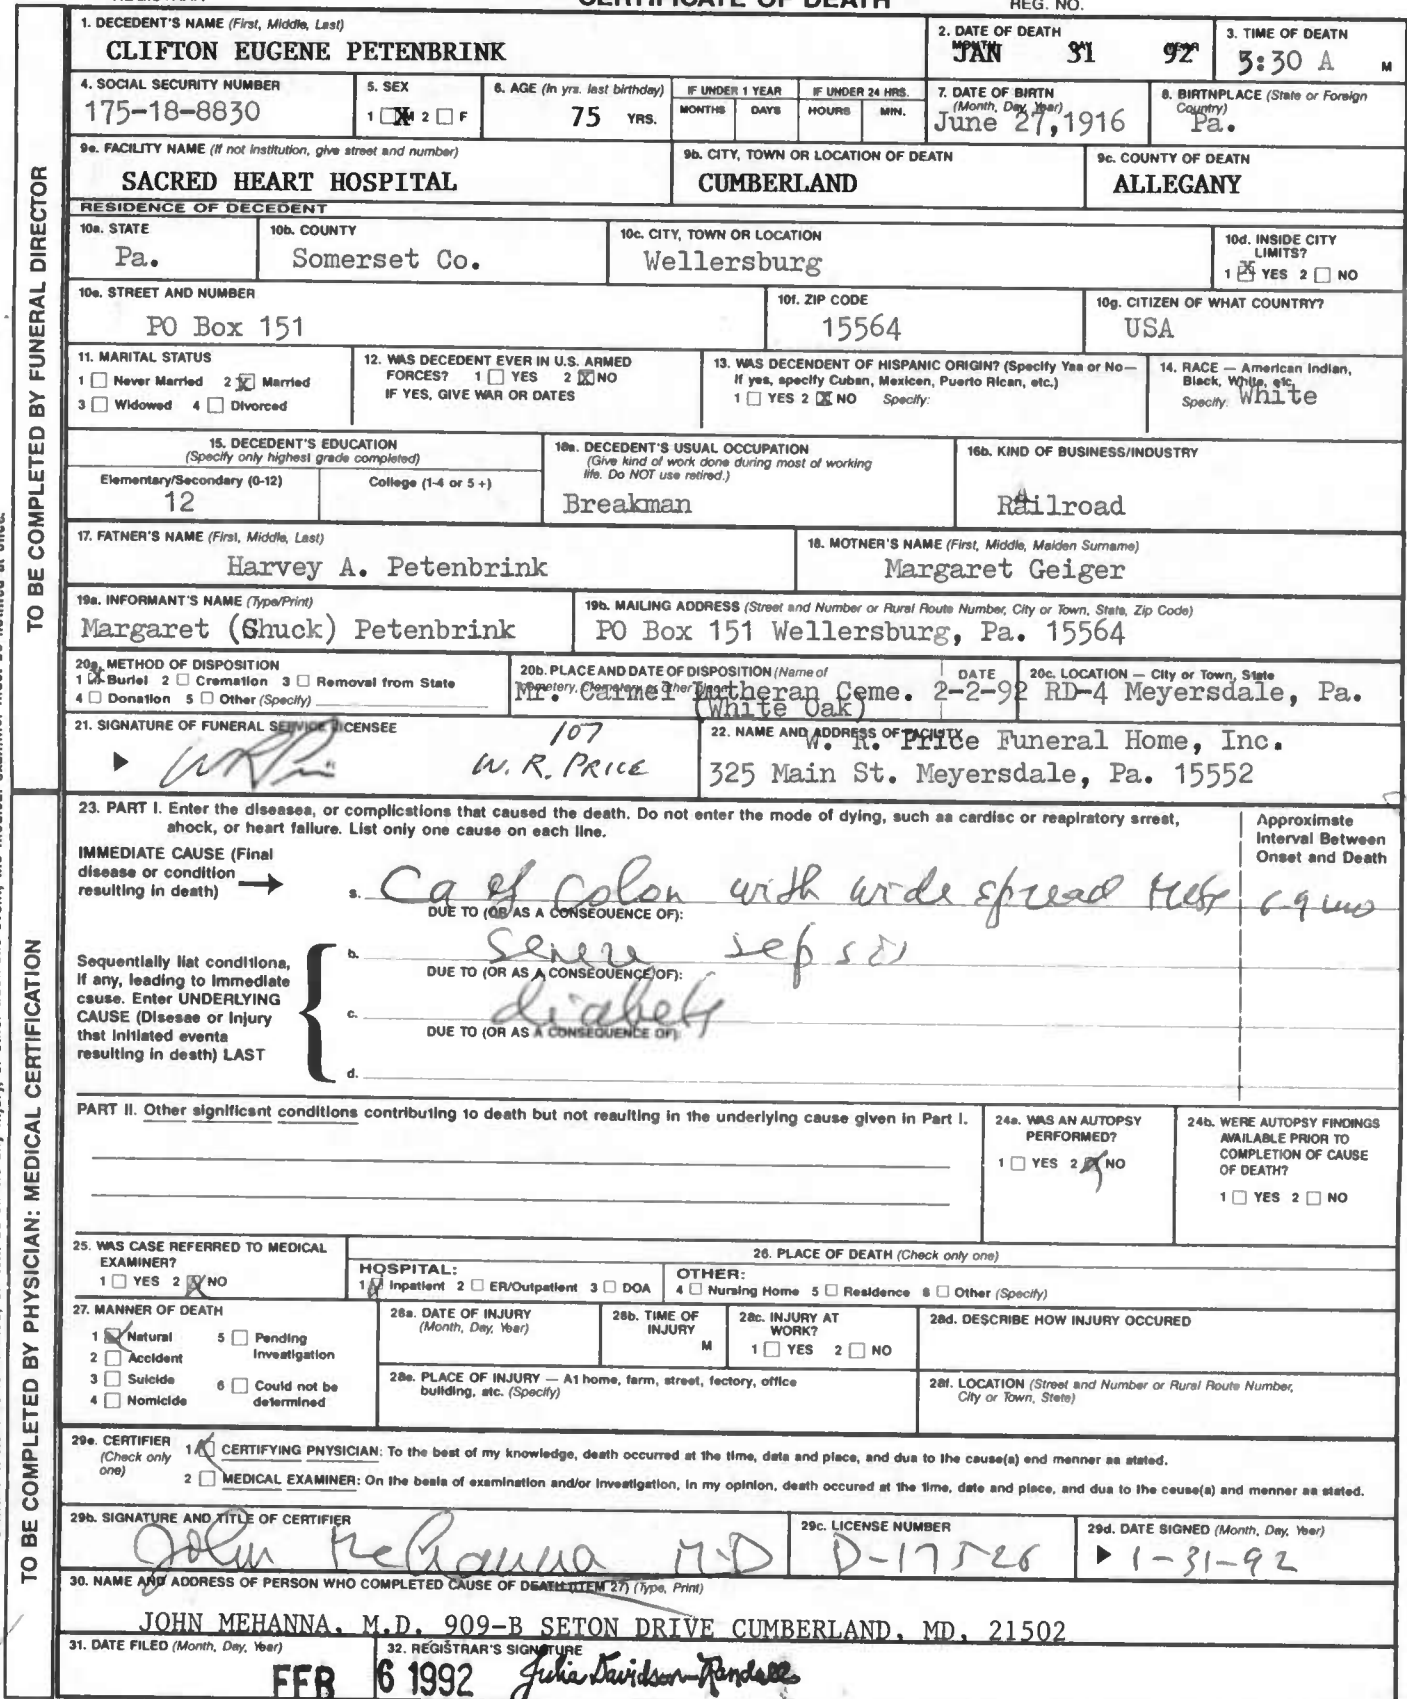 CERTIFICATE OF DEATH
REG. NO.
TO BE COMPLETED BY FUNERAL DIRECTOR
1. DECEDENT'S NAME (First, Middle, Last)
CLIFTON EUGENE PETENBRINK
2. DATE OF DEATH
MONTH DAY YEAR
JAN 31 92
3. TIME OF DEATH
3:30 A M
4. SOCIAL SECURITY NUMBER
175-18-8830
5. SEX
1 ☒ M 2 ☐ F
6. AGE (In yrs. last birthday)
75 YRS.
IF UNDER 1 YEAR
MONTHS DAYS
IF UNDER 24 HRS.
HOURS MIN.
7. DATE OF BIRTH
(Month, Day, Year)
June 27, 1916
8. BIRTHPLACE (State or Foreign
Country)
Pa.
9a. FACILITY NAME (If not institution, give street and number)
SACRED HEART HOSPITAL
9b. CITY, TOWN OR LOCATION OF DEATH
CUMBERLAND
9c. COUNTY OF DEATH
ALLEGANY
RESIDENCE OF DECEDENT
10a. STATE
Pa.
10b. COUNTY
Somerset Co.
10c. CITY, TOWN OR LOCATION
Wellersburg
10d. INSIDE CITY
LIMITS?
1 ☒ YES 2 ☐ NO
10e. STREET AND NUMBER
PO Box 151
10f. ZIP CODE
15564
10g. CITIZEN OF WHAT COUNTRY?
USA
11. MARITAL STATUS
1 ☐ Never Married 2 ☒ Married
3 ☐ Widowed 4 ☐ Divorced
12. WAS DECEDENT EVER IN U.S. ARMED
FORCES? 1 ☐ YES 2 ☒ NO
IF YES, GIVE WAR OR DATES
13. WAS DECENDENT OF HISPANIC ORIGIN? (Specify Yes or No—
If yes, specify Cuban, Mexican, Puerto Rican, etc.)
1 ☐ YES 2 ☒ NO Specify:
14. RACE — American Indian,
Black, White, etc.
Specify: White
15. DECEDENT'S EDUCATION
(Specify only highest grade completed)
Elementary/Secondary (0-12) College (1-4 or 5 +)
12
16a. DECEDENT'S USUAL OCCUPATION
(Give kind of work done during most of working
life. Do NOT use retired.)
Breakman
16b. KIND OF BUSINESS/INDUSTRY
Railroad
17. FATHER'S NAME (First, Middle, Last)
Harvey A. Petenbrink
18. MOTHER'S NAME (First, Middle, Maiden Surname)
Margaret Geiger
19a. INFORMANT'S NAME (Type/Print)
Margaret (Shuck) Petenbrink
19b. MAILING ADDRESS (Street and Number or Rural Route Number, City or Town, State, Zip Code)
PO Box 151 Wellersburg, Pa. 15564
20a. METHOD OF DISPOSITION
1 ☒ Burial 2 ☐ Cremation 3 ☐ Removal from State
4 ☐ Donation 5 ☐ Other (Specify)
20b. PLACE AND DATE OF DISPOSITION (Name of
cemetery, crematory or other place)
Mr. Carmel Lutheran Ceme.
(White Oak)
DATE
2-2-92
20c. LOCATION — City or Town, State
RD-4 Meyersdale, Pa.
21. SIGNATURE OF FUNERAL SERVICE LICENSEE
107
W. R. PRICE
22. NAME AND ADDRESS OF FACILITY
W. R. Price Funeral Home, Inc.
325 Main St. Meyersdale, Pa. 15552
TO BE COMPLETED BY PHYSICIAN: MEDICAL CERTIFICATION
23. PART I. Enter the diseases, or complications that caused the death. Do not enter the mode of dying, such as cardiac or respiratory arrest,
shock, or heart failure. List only one cause on each line.
Approximate
Interval Between
Onset and Death
IMMEDIATE CAUSE (Final
disease or condition
resulting in death)
a. Ca of Colon with wide spread Mets 6-9 mo
DUE TO (OR AS A CONSEQUENCE OF):
Sequentially list conditions,
if any, leading to immediate
cause. Enter UNDERLYING
CAUSE (Disease or injury
that initiated events
resulting in death) LAST
b. Severe sepsis
DUE TO (OR AS A CONSEQUENCE OF):
c. diabets
DUE TO (OR AS A CONSEQUENCE OF):
d.
PART II. Other significant conditions contributing to death but not resulting in the underlying cause given in Part I.
24a. WAS AN AUTOPSY
PERFORMED?
1 ☐ YES 2 ☒ NO
24b. WERE AUTOPSY FINDINGS
AVAILABLE PRIOR TO
COMPLETION OF CAUSE
OF DEATH?
1 ☐ YES 2 ☐ NO
25. WAS CASE REFERRED TO MEDICAL
EXAMINER?
1 ☐ YES 2 ☒ NO
26. PLACE OF DEATH (Check only one)
HOSPITAL:
1 ☒ Inpatient 2 ☐ ER/Outpatient 3 ☐ DOA
OTHER:
4 ☐ Nursing Home 5 ☐ Residence 6 ☐ Other (Specify)
27. MANNER OF DEATH
1 ☒ Natural 5 ☐ Pending
Investigation
2 ☐ Accident
3 ☐ Suicide 6 ☐ Could not be
determined
4 ☐ Homicide
28a. DATE OF INJURY
(Month, Day, Year)
28b. TIME OF
INJURY
M
28c. INJURY AT
WORK?
1 ☐ YES 2 ☐ NO
28d. DESCRIBE HOW INJURY OCCURED
28e. PLACE OF INJURY — At home, farm, street, factory, office
building, etc. (Specify)
28f. LOCATION (Street and Number or Rural Route Number,
City or Town, State)
29a. CERTIFIER
(Check only
one)
1 ☒ CERTIFYING PHYSICIAN: To the best of my knowledge, death occurred at the time, date and place, and due to the cause(s) and manner as stated.
2 ☐ MEDICAL EXAMINER: On the basis of examination and/or investigation, in my opinion, death occured at the time, date and place, and due to the cause(s) and manner as stated.
29b. SIGNATURE AND TITLE OF CERTIFIER
John Mehanna M.D
29c. LICENSE NUMBER
D-17526
29d. DATE SIGNED (Month, Day, Year)
1-31-92
30. NAME AND ADDRESS OF PERSON WHO COMPLETED CAUSE OF DEATH (ITEM 27) (Type, Print)
JOHN MEHANNA, M.D. 909-B SETON DRIVE CUMBERLAND, MD, 21502
31. DATE FILED (Month, Day, Year)
FEB 6 1992
32. REGISTRAR'S SIGNATURE
Julia Davidson-Randall